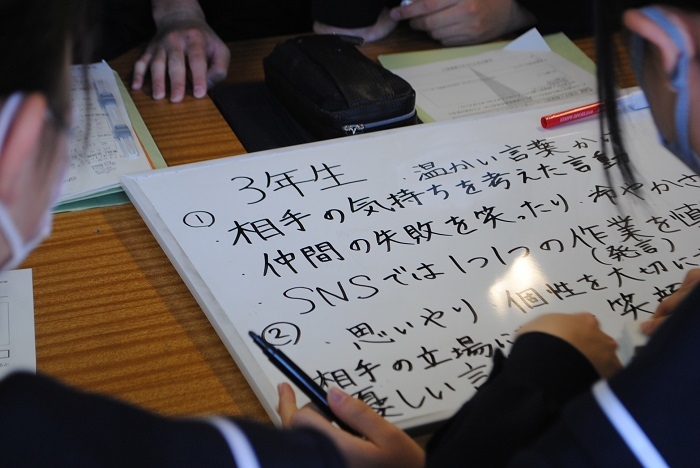 3年生
① ・温かい言葉か
・相手の気持ちを考えた言動
・仲間の失敗を笑ったり冷やかさ
・SNSでは1つ1つの作業を慎
(発言)
② ・思いやり ・個性を大切に
・相手の立場に 笑顔
優しい言